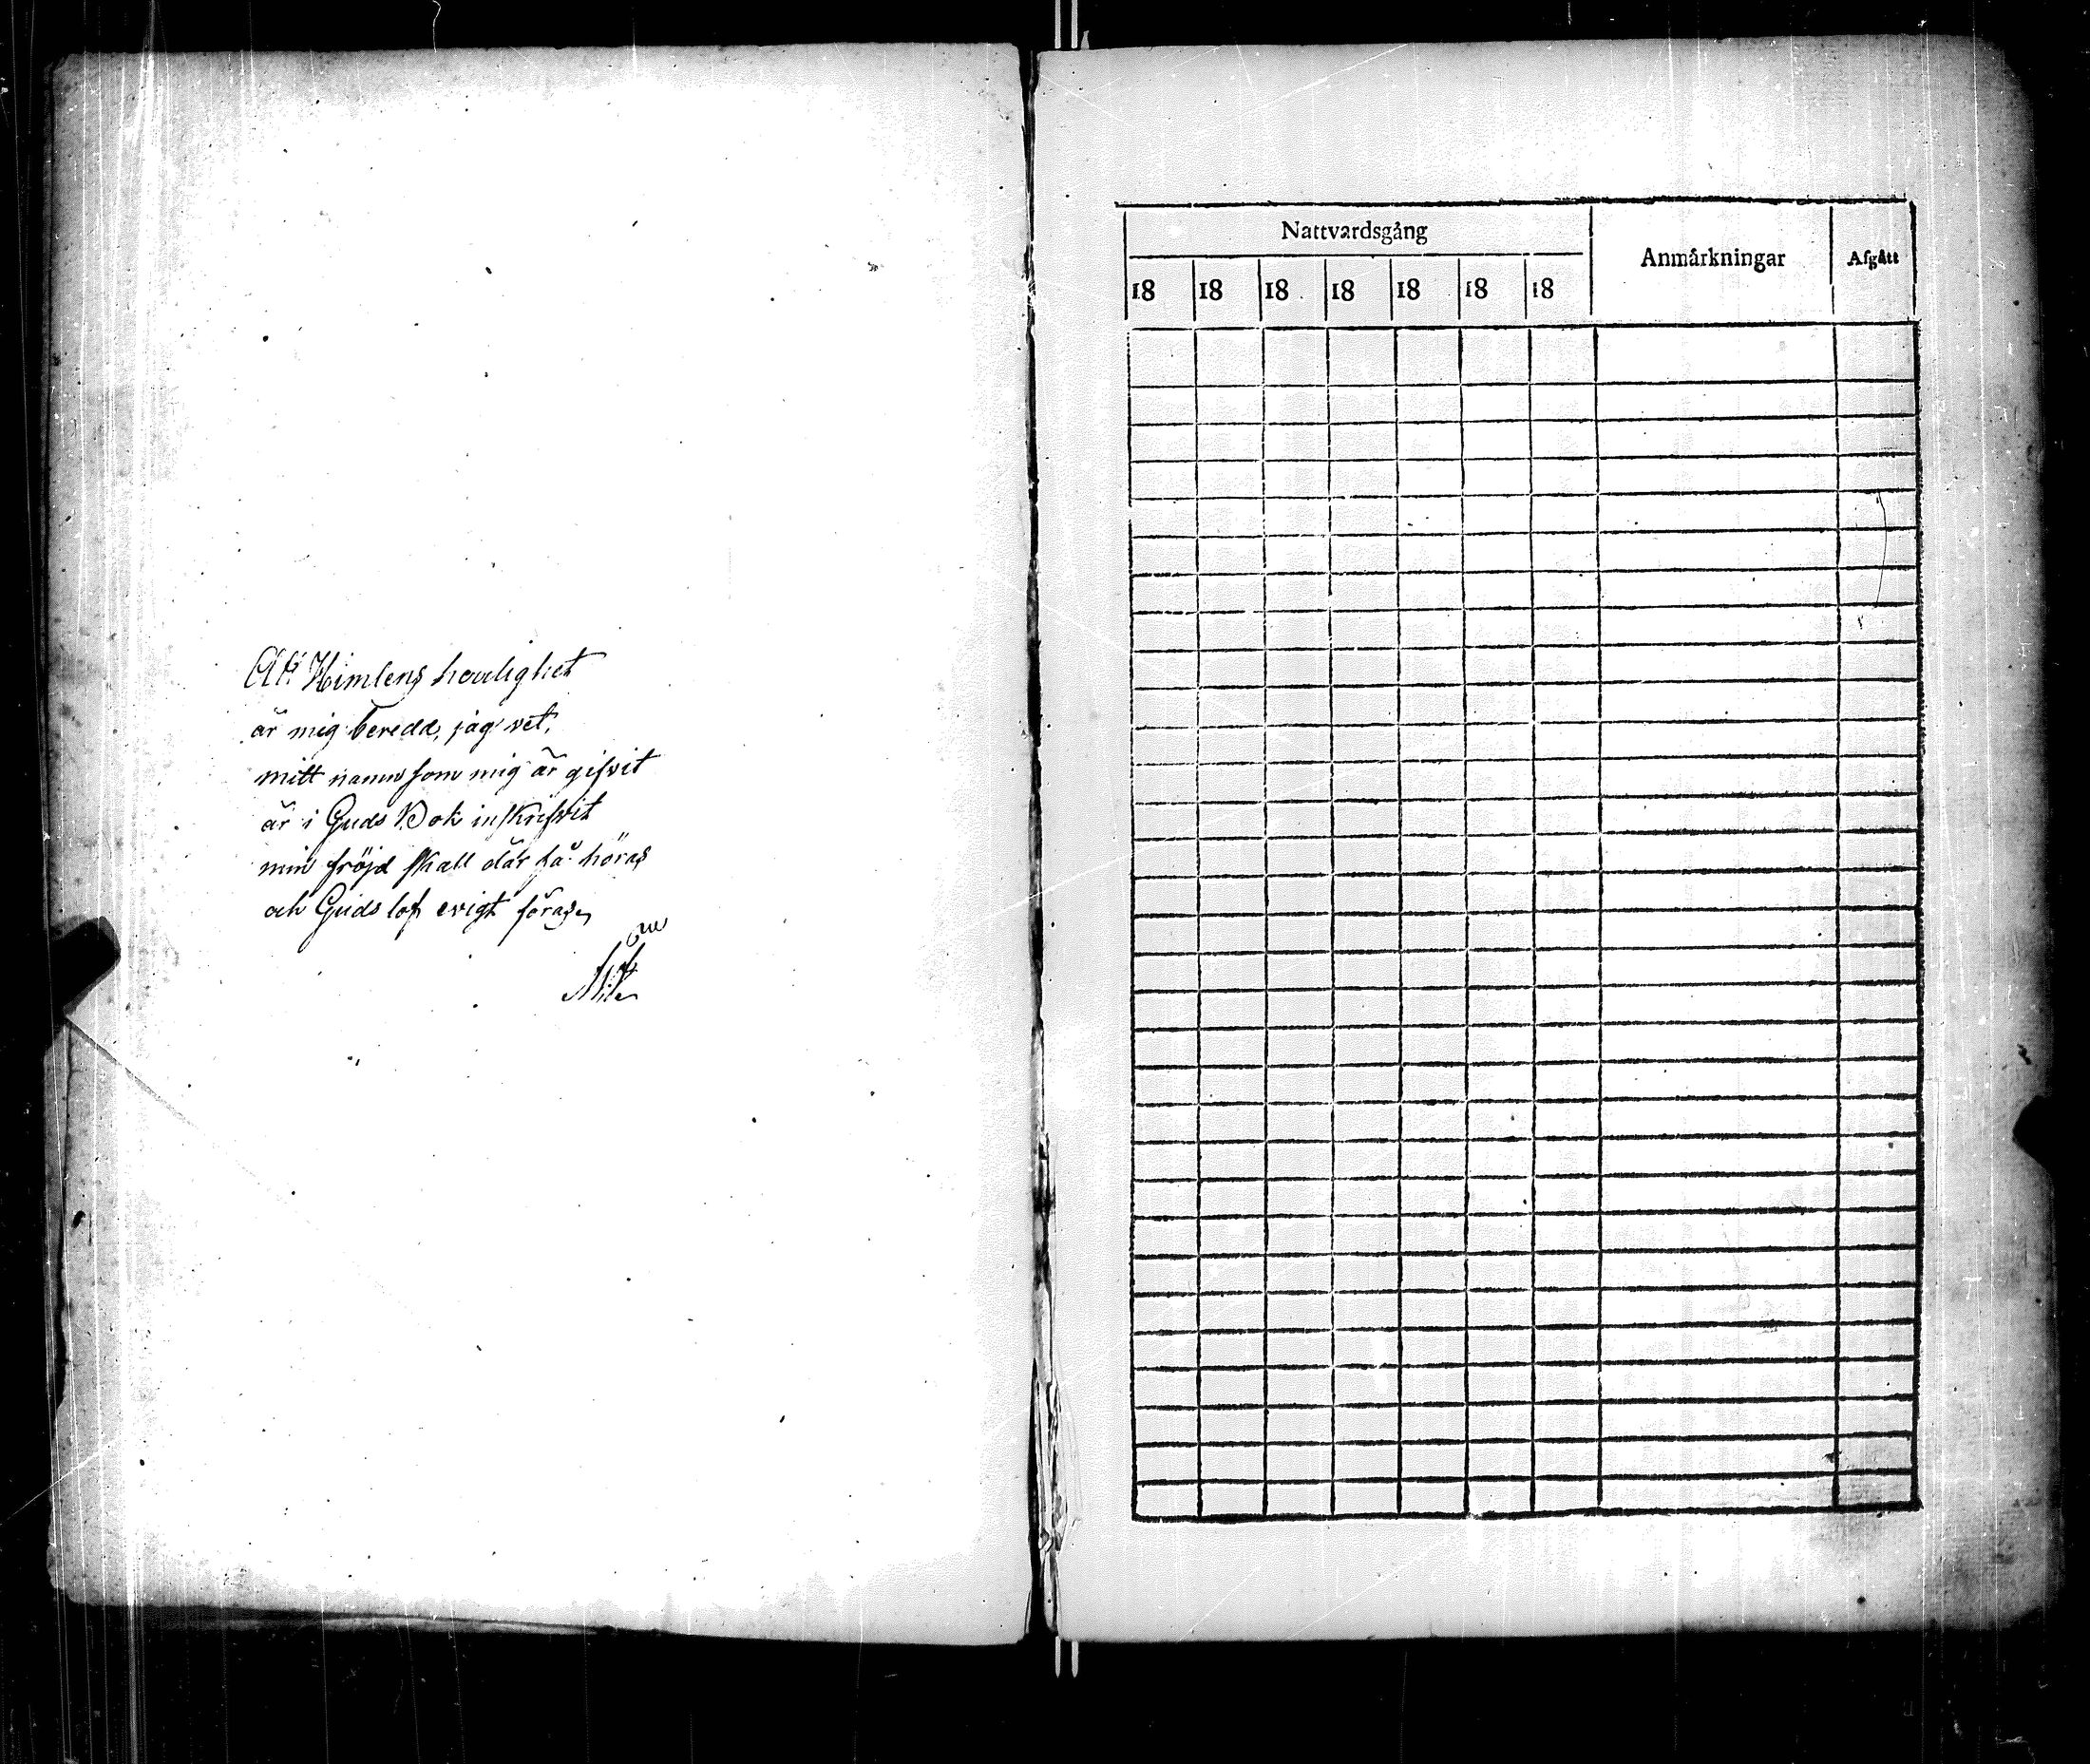 Att Himlens härlighet
är mig beredd, jag vet,
mitt namn som mig är gifvit
är i Guds Bok inskrifvit
min fröjd skall där få höras
och Guds lof evigt föras,
Nattvardsgång
Anmårkningar
Afgått
18 18 18 18 18 18 18